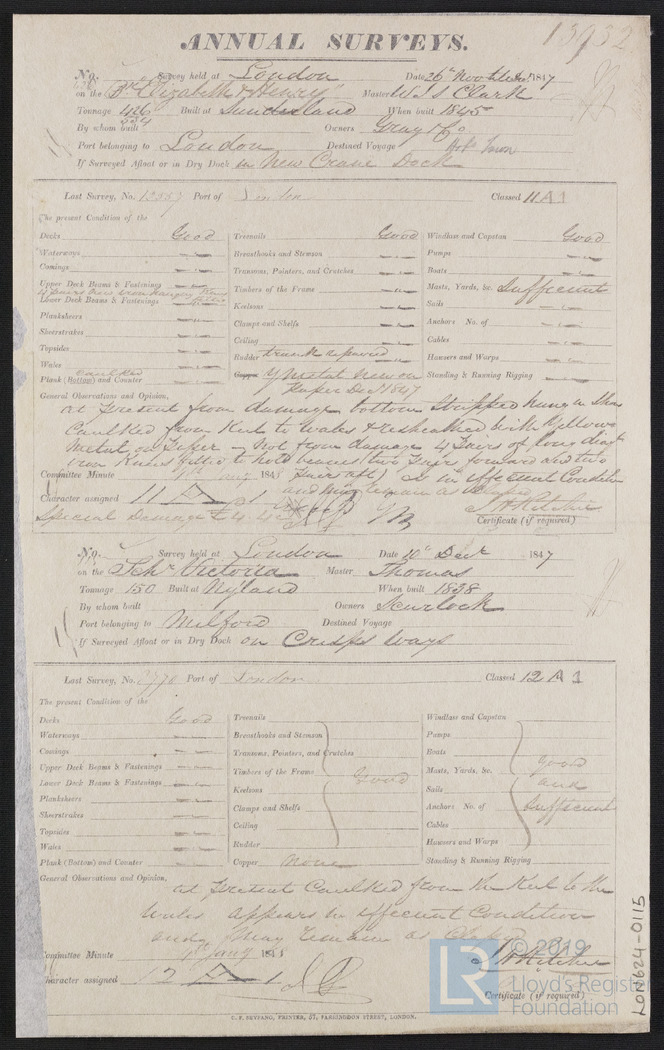 ANNUAL SURVEYS.
13932
No. Survey held at London Date 26th Nov 1847
on the Br "Elizabeth & Henry" Master W. S. Clark
Tonnage 426 Built at Sunderland When built 1845
334
By whom built Owners Gray & Co
Port belonging to London Destined Voyage
If Surveyed Afloat or in Dry Dock in New Crane Dock
Last Survey, No. Port of London Classed 11 A 1
The present Condition of the
Decks Good Treenails Good Windlass and Capstan Good
Waterways Breasthooks and Stemson Pumps
Comings Transoms, Pointers, and Crutches Boats
Upper Deck Beams & Fastening Timbers of the Frame Masts, Yards, &c. Sufficient
Lower Deck Beams & Fastenings Keelsons Sails
Planksheers Clamps and Shelfs Anchors No. of
Sheerstrakes Ceiling Cables
Topsides Rudder repaired Hawsers and Warps
Wales Copper Y Metal new on Standing & Running Rigging
caulked
Plank (Bottom) and Counter Paper Dec 1847
General Observations and Opinion,
at present from damage bottom stripped hung in
Caulked from Keel to Wales & resheathed with Yellow
Metal on Paper – Not from damage 4 pairs of long
iron Knees fitted to hold beams (two pairs forward and two
Committee Minute 184 pairs aft) is in efficient Condition
and may remain as Classed
Character assigned 11 A 1
Special Damage
Certificate (if required)
No. Survey held at London Date 10th Decr 1847
on the Schr Victoria Master Thomas
Tonnage 150 Built at Nyland When built 1838
By whom built Owners Scurlock
Port belonging to Milford Destined Voyage
If Surveyed Afloat or in Dry Dock on Crisps Ways
Last Survey, No. Port of London Classed 12 A 1
The present Condition of the
Decks Good Treenails Windlass and Capstan
Waterways Breasthooks and Stemson Pumps
Comings Transoms, Pointers, and Crutches Boats
Upper Deck Beams & Fastenings Timbers of the Frame Good Masts, Yards, &c. Good
Lower Deck Beams & Fastenings Keelsons Sails and
Planksheers Clamps and Shelfs Anchors No. of Sufficient
Sheerstrakes Ceiling Cables
Topsides Rudder Hawsers and Warps
Wales Copper None Standing & Running Rigging
Plank (Bottom) and Counter
General Observations and Opinion,
at present Caulked from the Keel to the
Wales appears in efficient Condition
and may remain as Classed
Committee Minute Jany 184
Character assigned 12 A 1
Certificate (if required)
C. F. SEYFANG, PRINTER, 57, FARRINGDON STREET, LONDON.
LON624-0115
© 2019
LR
Lloyd's Register
Foundation